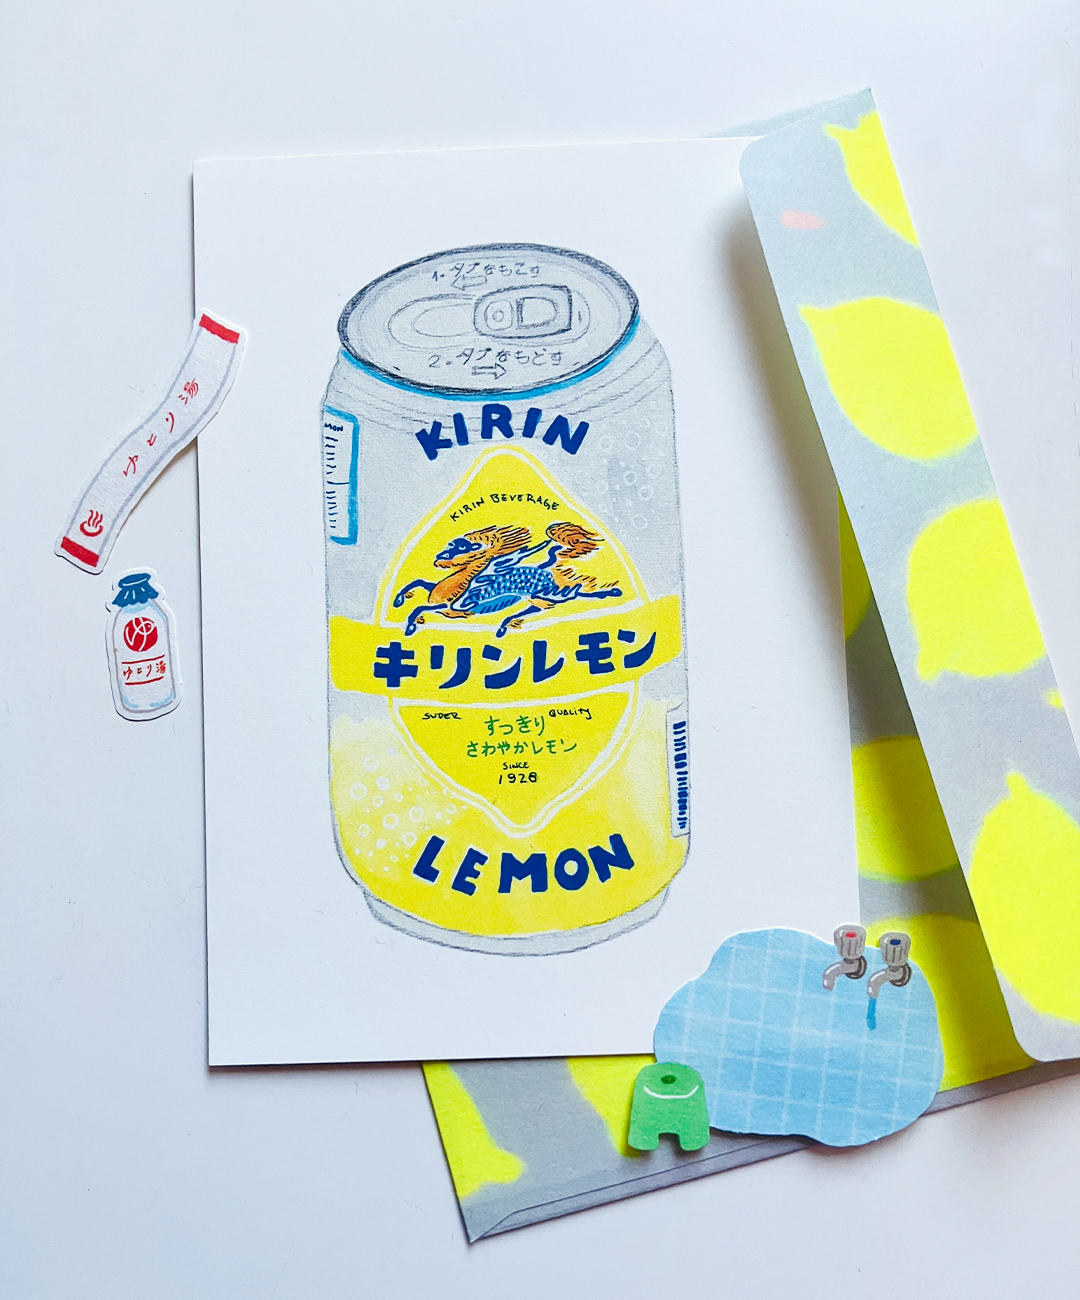 1.タブをおこす
2.タブをもどす
KIRIN
KIRIN BEVERAGE
キリンレモン
SUPER QUALITY
すっきり
さわやかレモン
SINCE
1928
LEMON
ゆとり湯
ゆ
ゆとり湯